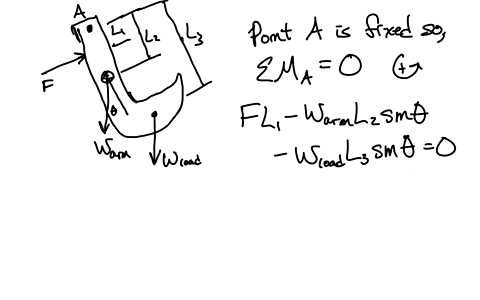 A
L₁
L₂
L₃
F
θ
Warm
Wload
Point A is fixed so,
ΣM_A = 0 ↺+
FL₁ - WarmL₂sinθ
- WloadL₃sinθ = 0